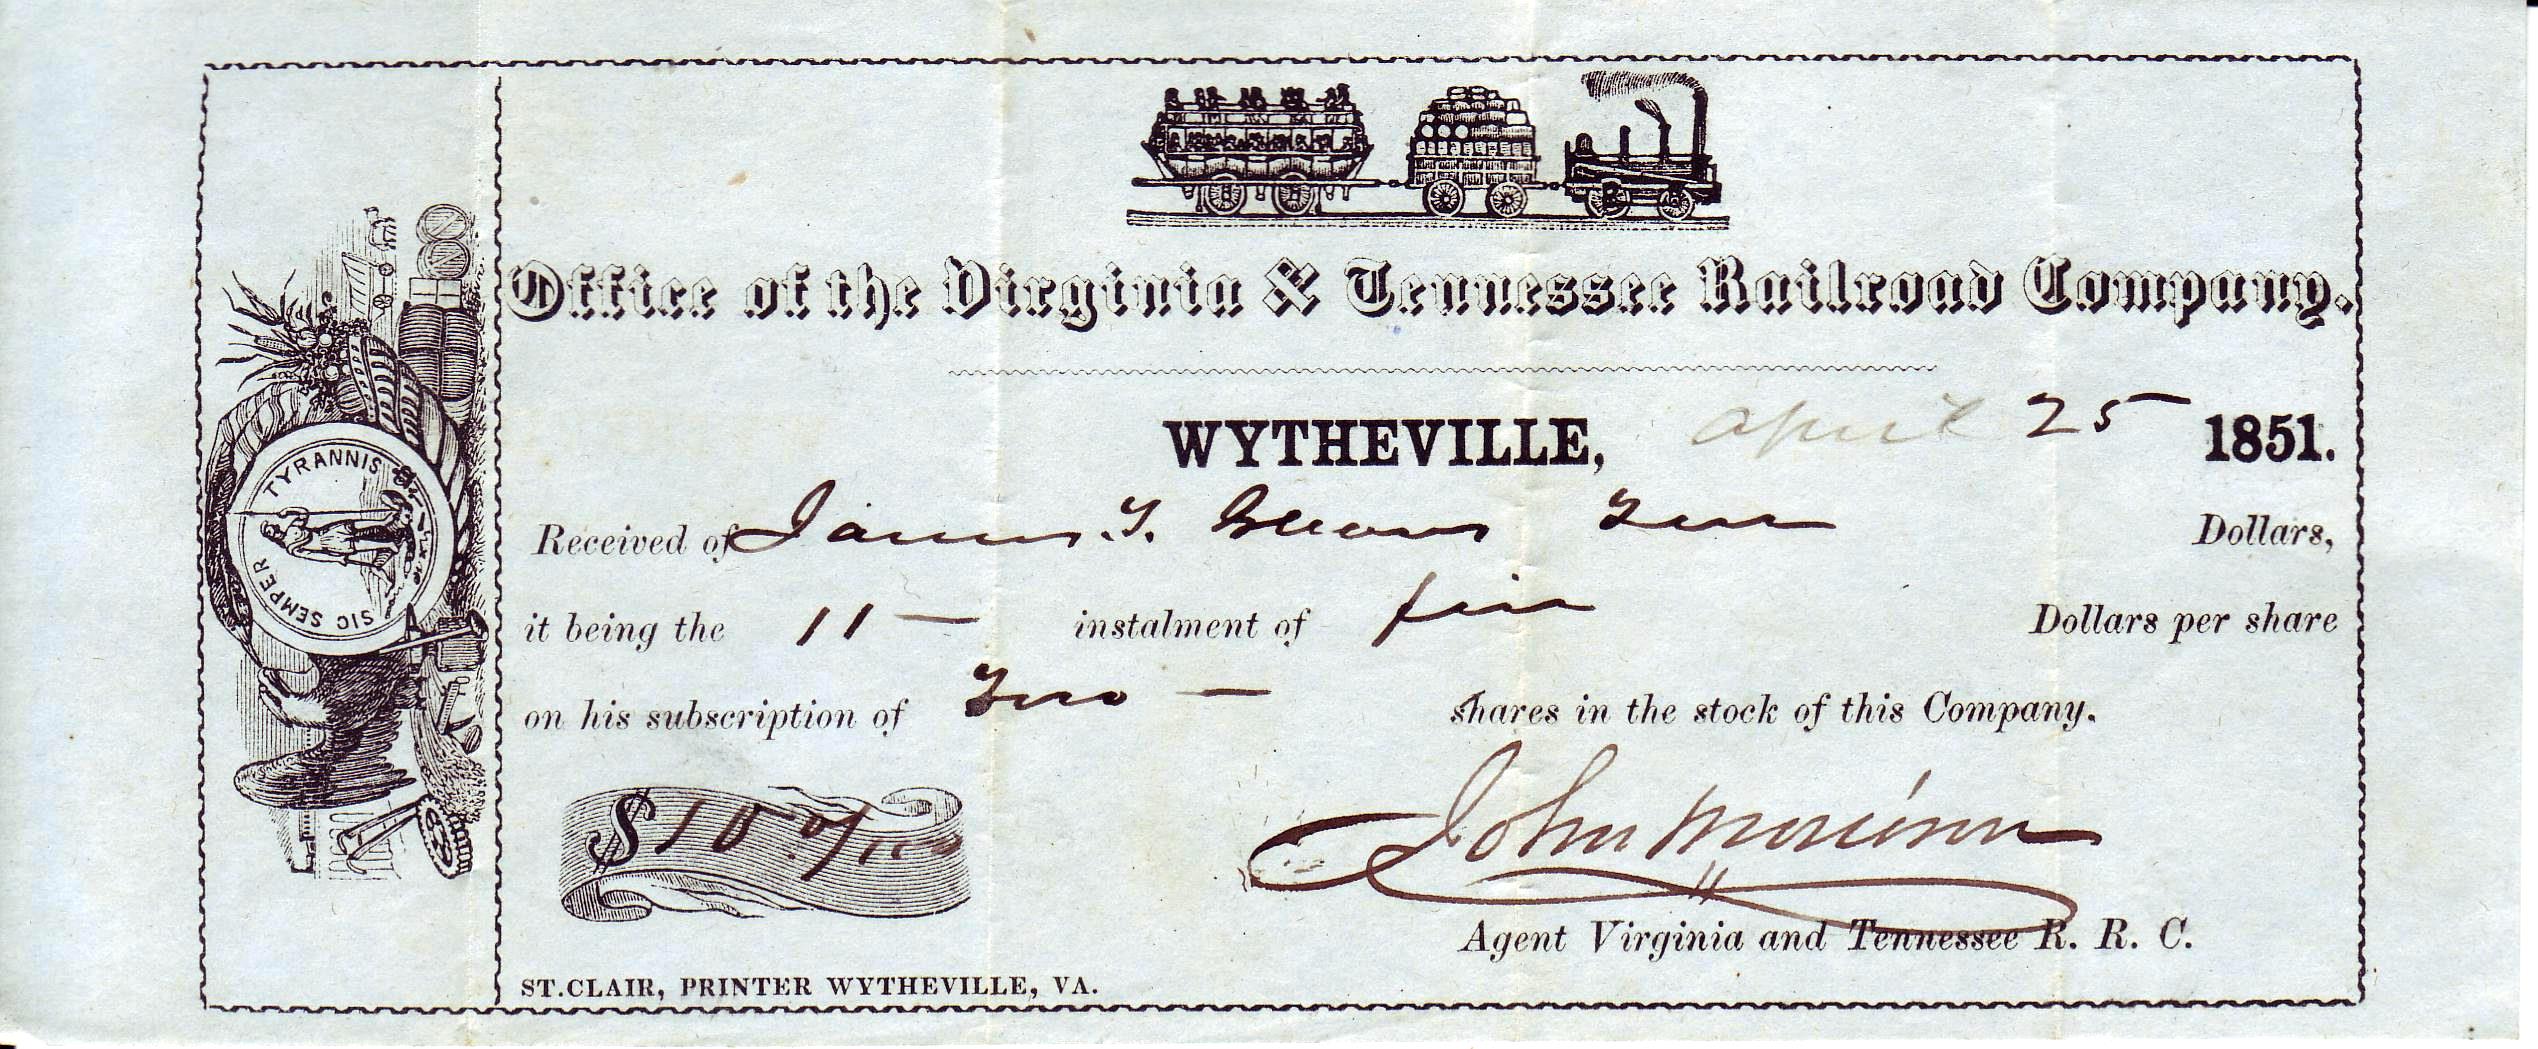 Office of the Virginia & Tennessee Railroad Company.
WYTHEVILLE, april 25 1851.
Received of James T. Ten Dollars,
it being the 11 — instalment of five Dollars per share
on his subscription of Two — shares in the stock of this Company.
$10.00/100
John
Agent Virginia and Tennessee R. R. C.
ST. CLAIR, PRINTER WYTHEVILLE, VA.
SIC SEMPER TYRANNIS